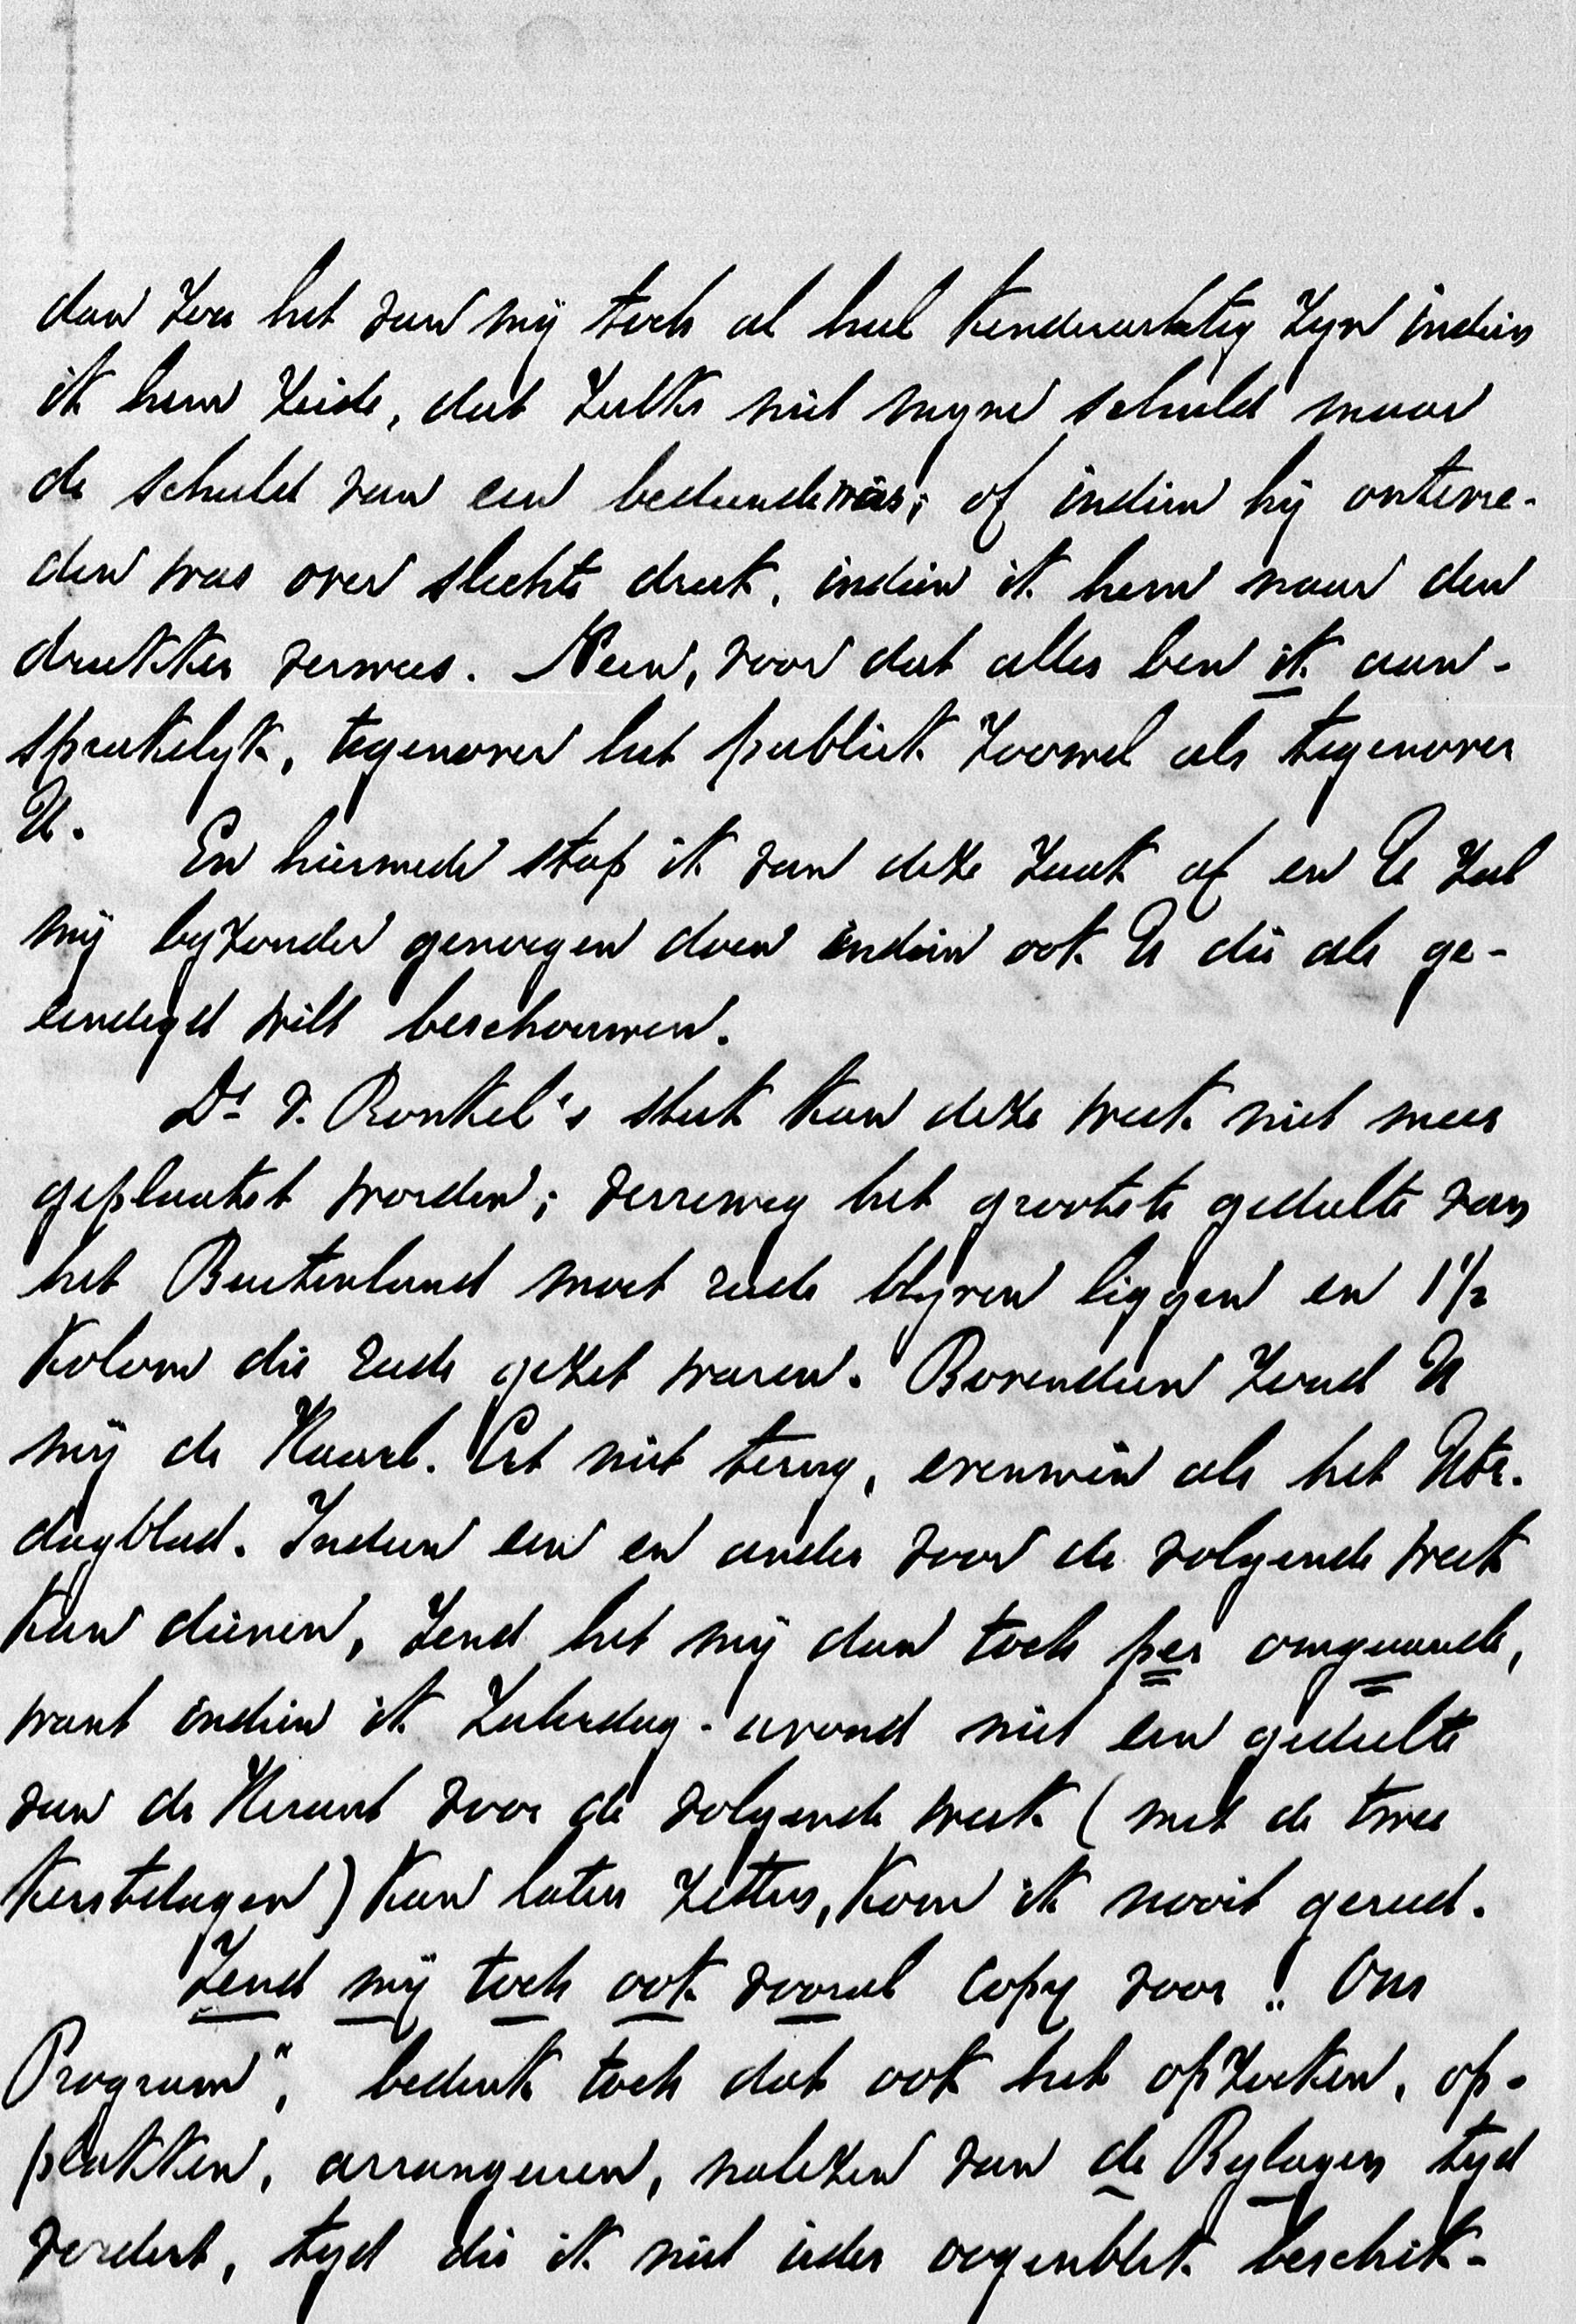 dan zou het van mij toch al heel kinderachtig zijn indien
ik hem zeide, dat zulks niet mijne schuld maar
de schuld van een bediende was; of indien hij ontevre-
den was over slechte druk, indien ik hem naar den
drukker verwees. Neen, voor dat alles ben ik aan-
sprakelijk, tegenover het publiek zoowel als tegenover
U.
En hiermede stap ik van deze zaak af en U zal
mij byzonder genoegen doen indien ook U die als ge-
eindigd wilt beschouwen.
Ds v. Ronkel's stuk kan deze week niet meer
geplaatst worden; verreweg het grootste gedeelte van
het Buitenland moet reeds blijven liggen en 1½
kolom die reeds gezet waren. Bovendien zond U
mij de Haarl. Crt niet terug, evenmin als het Utr.
dagblad. Indien een en ander voor de volgende week
kan dienen, zend het mij dan toch per omgaande,
want indien ik Zaterdag-avond niet een gedeelte
van de Heraut voor de volgende week (met de twee
Kerstdagen) kan laten zetten, kom ik nooit gereed.
Zend mij toch ook vooral copy voor "Ons
Program", bedenk toch dat ook het opzoeken, op-
plakken, arrangeeren, nalezen van de Bylagen tijd
vordert, tijd die ik niet ieder oogenblik beschik-